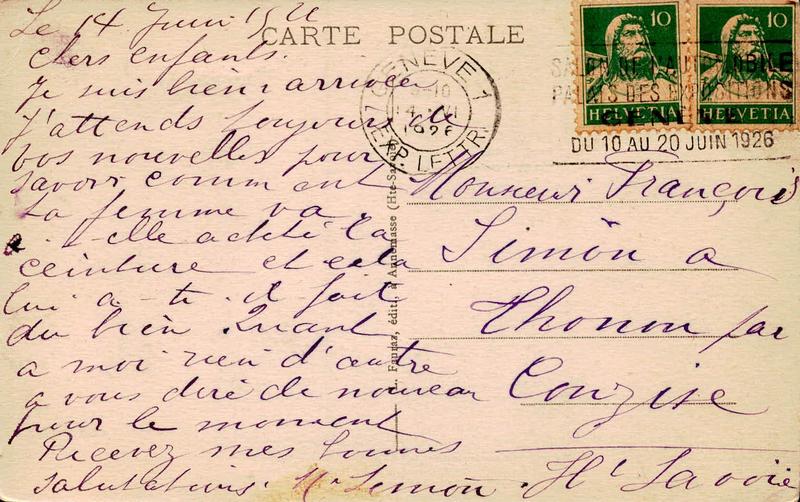 Le 14 Juin 1926
chers enfants.
Je suis bien arrivée
J'attends toujours de
vos nouvelles pour
savoir comment
ta femme va.
elle acheté la
ceinture et cela
lui a-t-il fait
du bien Quant
a moi rien d'autre
a vous dire de nouveau
pour le moment
Recevez mes bonnes
salutations. Simon
CARTE POSTALE
GENÈVE 1
14 VI
1926
EXP. LETTR.
10 10
HELVETIA HELVETIA
PALAIS DES EXPOSITIONS
DU 10 AU 20 JUIN 1926
Fauraz, édit., à Annemasse (Hte-Savoie)
Monsieur François
Simon a
Thonon par
Conzise
Hte Savoie